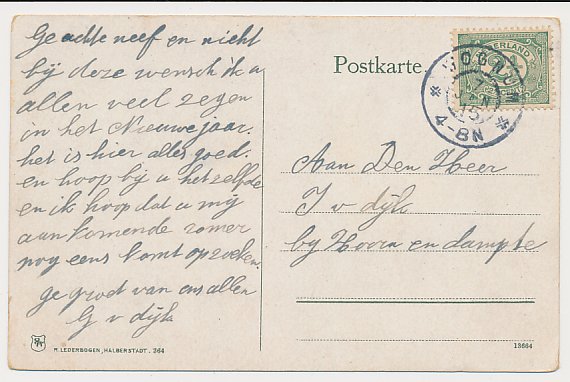 Geachte neef en nicht
bij deze wensch ik u
allen veel zegen
in het Nieuwe jaar.
het is hier alles goed.
en hoop bij u het zelfde
en ik hoop dat u mij
aankomende zomer
nog eens komt opzoeken.
ge groet van ons allen
G v dijk
Postkarte
NEDERLAND
4-8N
Aan Den Heer
J v dijk
by Hoorn en dampte
R. LEDERBOGEN, HALBERSTADT. 364
13664